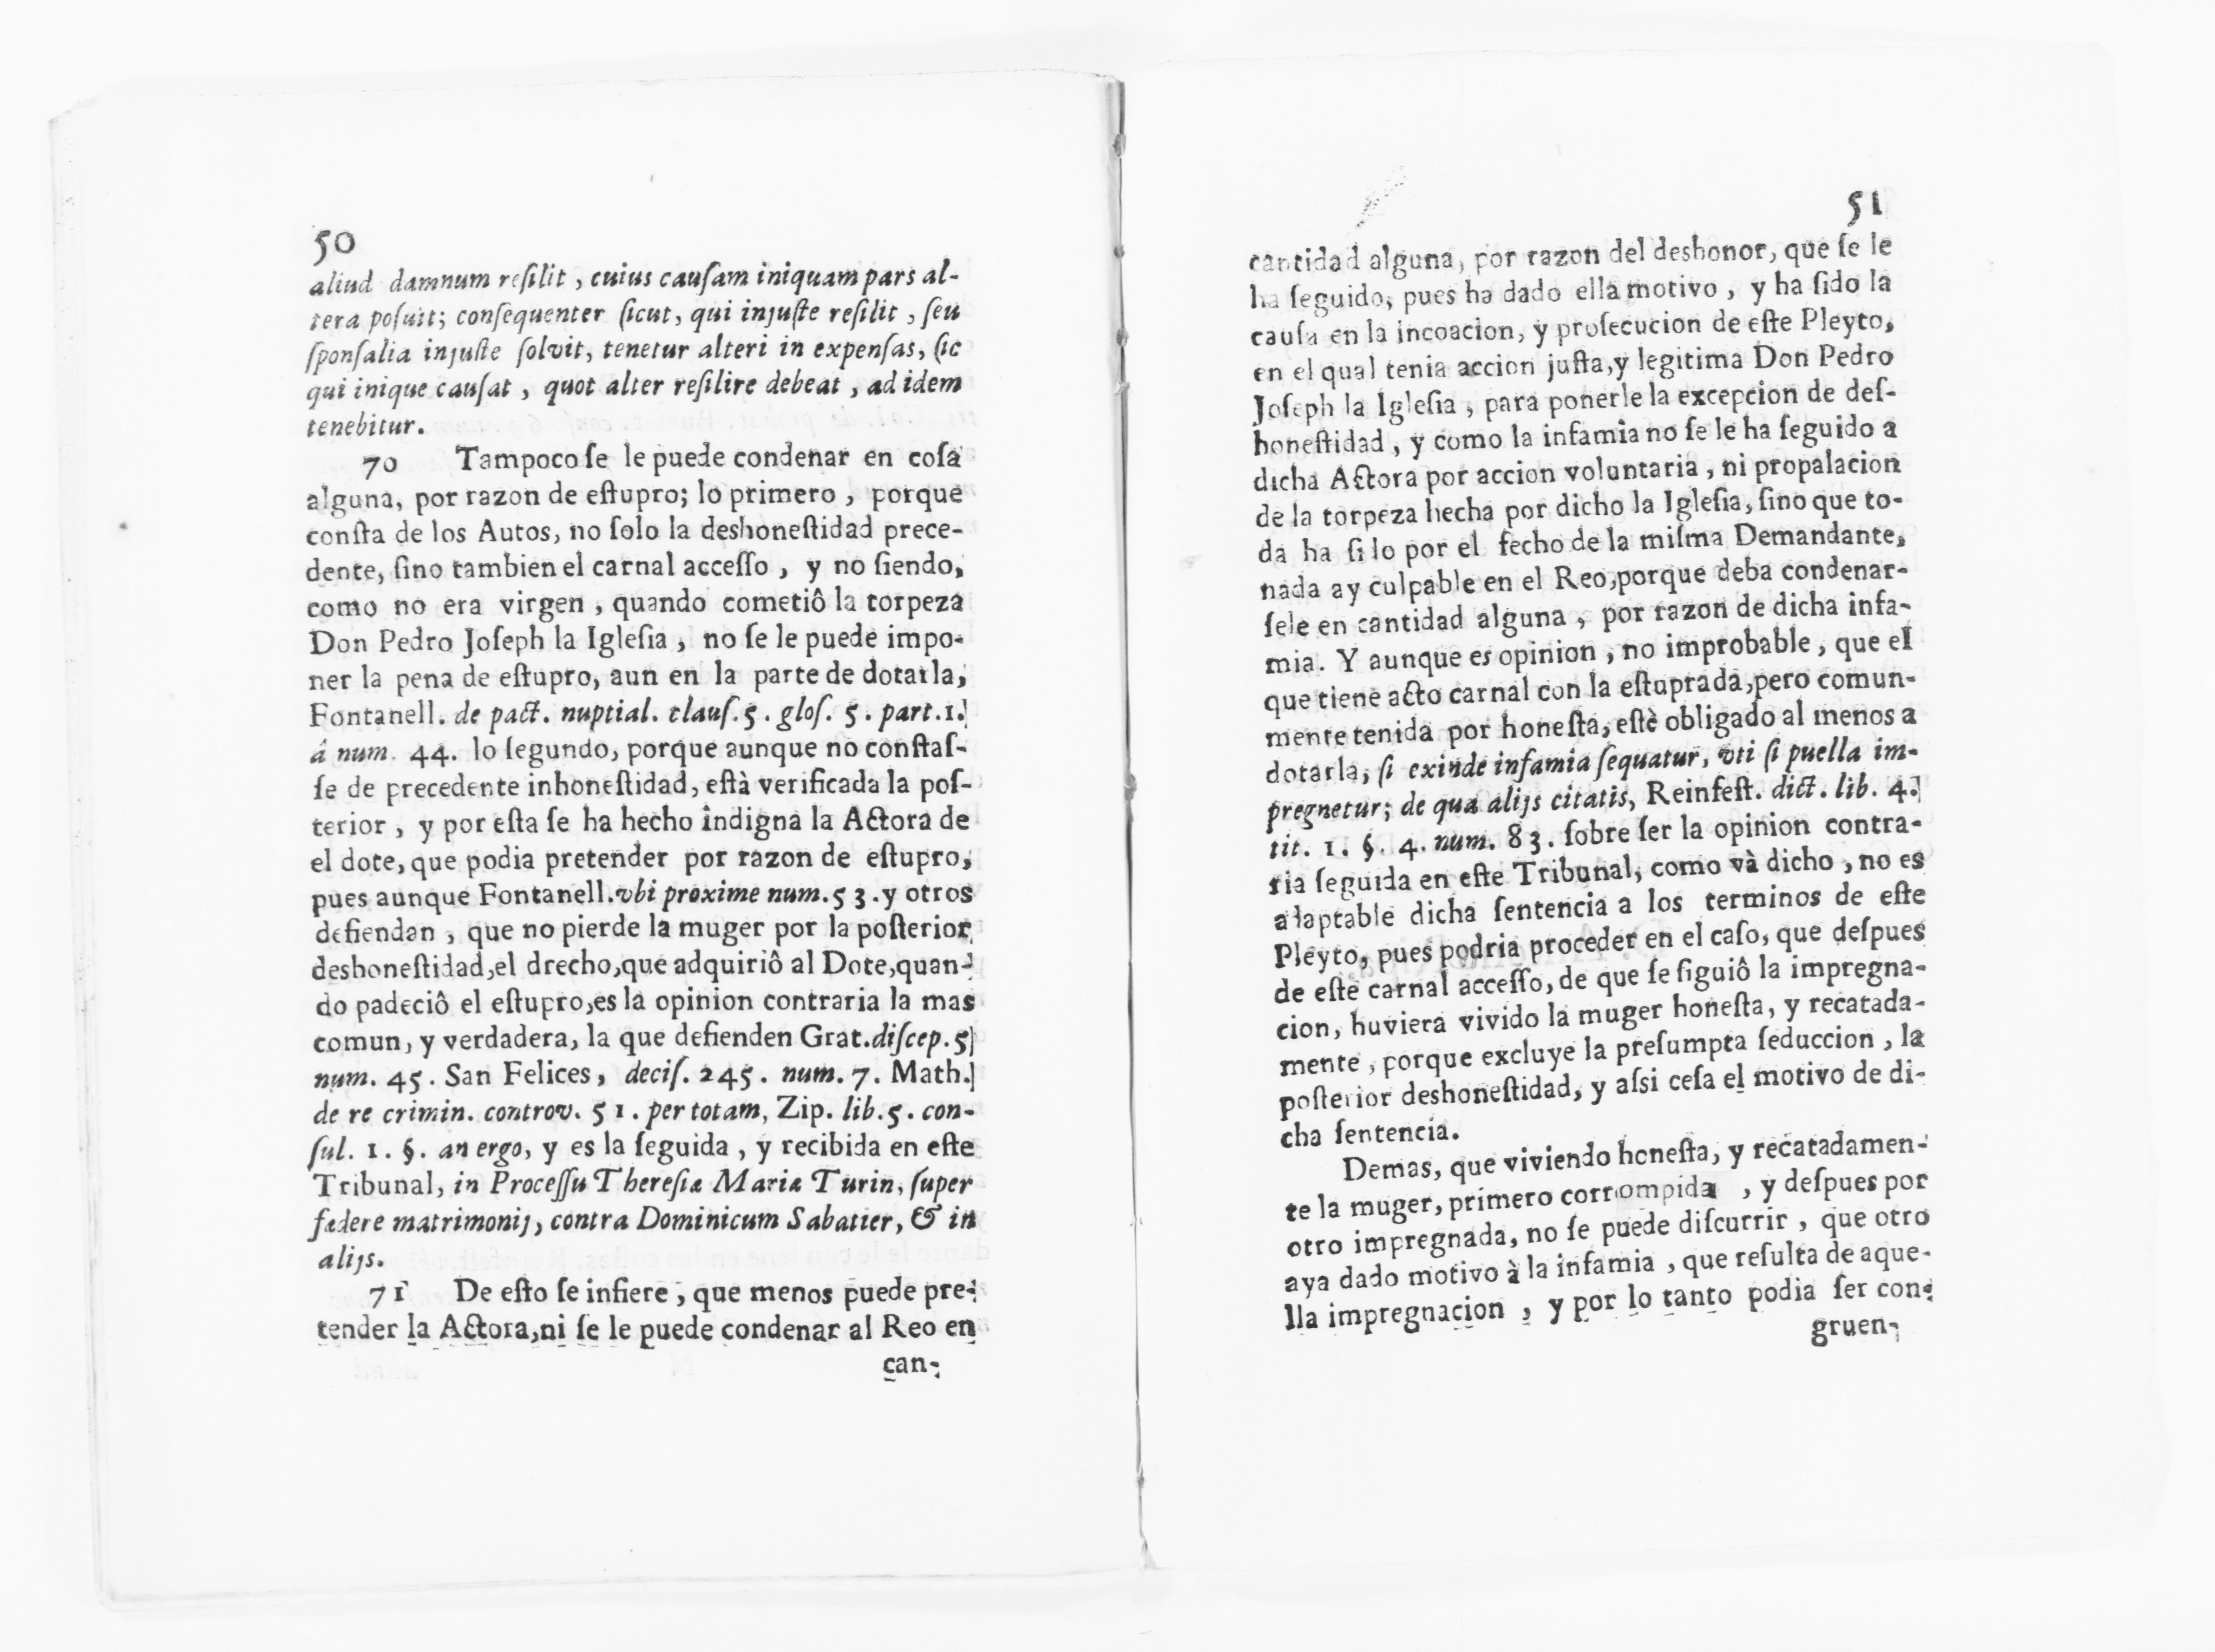 50
aliud damnum resilit , cuius causam iniquam pars al-
tera posuit; consequenter sicut, qui injuste resilit , seu
sponsalia injuste solvit, tenetur alteri in expensas, sic
qui inique causat , quot alter resilire debeat , ad idem
tenebitur.
70 Tampoco se le puede condenar en cosa
alguna, por razon de estupro; lo primero , porque
consta de los Autos, no solo la deshonestidad prece-
dente, sino tambien el carnal accesso , y no siendo,
como no era virgen , quando cometiô la torpeza
Don Pedro Joseph la Iglesia , no se le puede impo-
ner la pena de estupro, aun en la parte de dotarla,
Fontanell. de pact. nuptial. claus. 5. glos. 5. part. 1.
â num. 44. lo segundo, porque aunque no constas-
se de precedente inhonestidad, està verificada la pos-
terior , y por esta se ha hecho indigna la Actora de
el dote, que podia pretender por razon de estupro,
pues aunque Fontanell. vbi proxime num. 53. y otros
defiendan , que no pierde la muger por la posterior
deshonestidad, el drecho, que adquiriô al Dote, quan-
do padeciô el estupro, es la opinion contraria la mas
comun, y verdadera, la que defienden Grat. discep. 5
num. 45. San Felices, decis. 245. num. 7. Math.
de re crimin. controv. 51. per totam, Zip. lib. 5. con-
sul. 1. §. an ergo, y es la seguida , y recibida en este
Tribunal, in Processu Theresiæ Mariæ Turin, super
fædere matrimonij, contra Dominicum Sabatier, & in
alijs.
71 De esto se infiere , que menos puede pre-
tender la Actora, ni se le puede condenar al Reo en
can-
51
cantidad alguna, por razon del deshonor, que se le
ha seguido, pues ha dado ella motivo , y ha sido la
causa en la incoacion, y prosecucion de este Pleyto,
en el qual tenia accion justa, y legitima Don Pedro
Joseph la Iglesia , para ponerle la excepcion de des-
honestidad , y como la infamia no se le ha seguido a
dicha Actora por accion voluntaria , ni propalacion
de la torpeza hecha por dicho la Iglesia, sino que to-
da ha sido por el fecho de la misma Demandante,
nada ay culpable en el Reo, porque deba condenar-
sele en cantidad alguna , por razon de dicha infa-
mia. Y aunque es opinion , no improbable , que el
que tiene acto carnal con la estuprada, pero comun-
mente tenida por honesta, estè obligado al menos a
dotarla, si exinde infamia sequatur, vti si puella im-
pregnetur; de qua alijs citatis, Reinfest. dict. lib. 4.
tit. 1. §. 4. num. 83. sobre ser la opinion contra-
ria seguida en este Tribunal, como và dicho , no es
adaptable dicha sentencia a los terminos de este
Pleyto, pues podria proceder en el caso, que despues
de este carnal accesso, de que se siguiô la impregna-
cion, huviera vivido la muger honesta, y recatada-
mente , porque excluye la presumpta seduccion , la
posterior deshonestidad, y assi cesa el motivo de di-
cha sentencia.
Demas, que viviendo honesta, y recatadamen-
te la muger, primero corrompida , y despues por
otro impregnada, no se puede discurrir , que otro
aya dado motivo à la infamia , que resulta de aque-
lla impregnacion , y por lo tanto podia ser con-
gruen-